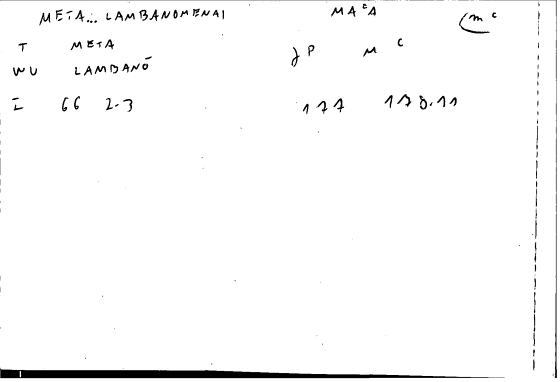 META... LAMBANOMENAI MAᶜA (mᶜ
T META JP M C
WU LAMBANŌ
I 66 2.3 177 178.11